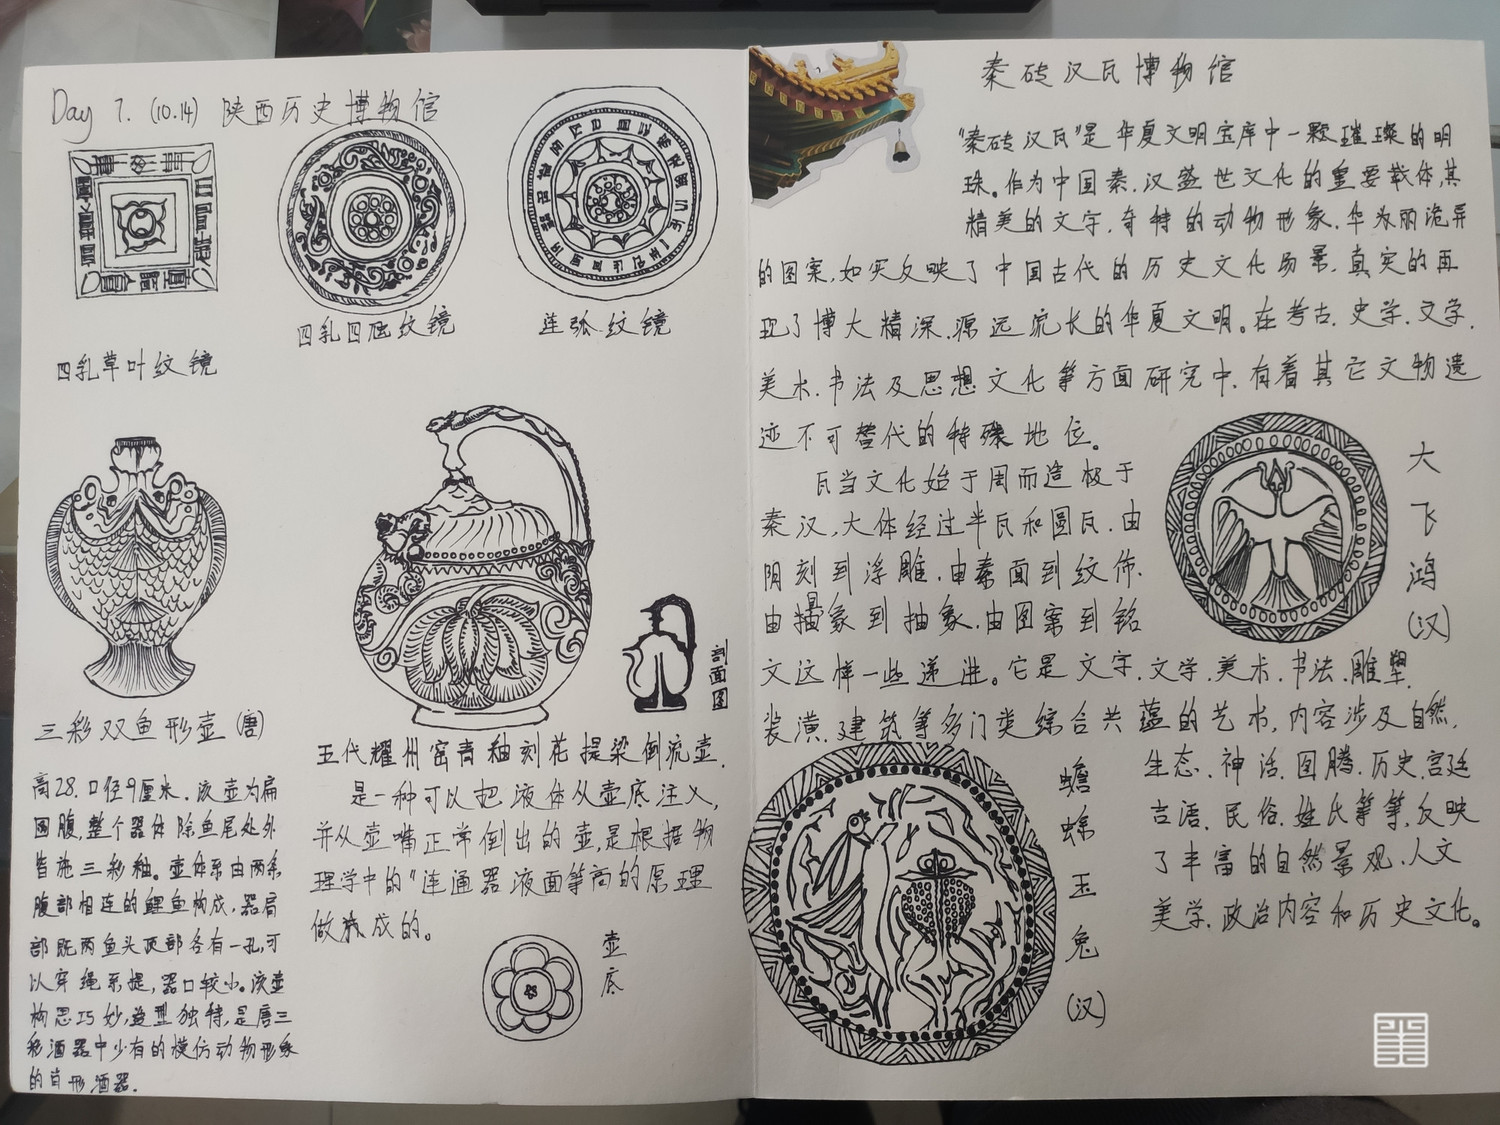 Day 7. (10.14) 陕西历史博物馆
四乳四虺纹镜
连弧纹镜
四乳草叶纹镜
三彩双鱼形壶(唐)
高28.口径9厘米.该壶为扁
圆腹,整个器体除鱼尾处外
皆施三彩釉。壶体系由两条
腹部相连的鲤鱼构成,器肩
部既两鱼头顶部各有一孔,可
以穿绳系提,器口较小。该壶
构思巧妙,造型独特,是唐三
彩酒器中少有的模仿动物形象
的 形酒器.
五代耀州窑青釉刻花提梁倒流壶.
是一种可以把液体从壶底注入,
并从壶嘴正常倒出的壶,是根据物
理学中的"连通器液面等高的原理
做 成的。
剖面图
壶底
秦砖汉瓦博物馆
"秦砖汉瓦"是华夏文明宝库中一颗璀璨的明
珠。作为中国秦.汉盛世文化的重要载体,其
精美的文字,奇特的动物形象.华为丽诡异
的图案,如实反映了中国古代的历史文化场景.真实的再
现了博大精深.源远流长的华夏文明。在考古.史学.文学.
美术.书法及思想文化等方面研究中.有着其它文物遗
迹不可替代的特殊地位。
瓦当文化始于周而造极于
秦汉,大体经过半瓦和圆瓦.由
阴刻到浮雕.由素面到纹饰.
由 象到抽象.由图案到铭
文这样一些递进。它是文字.文学.美术.书法.雕塑.
装潢.建筑等多门类综合共蕴的艺术,内容涉及自然.
生态.神话.图腾.历史.宫廷
言语.民俗.姓氏等等,反映
了丰富的自然景观.人文
美学.政治内容和历史文化。
大飞鸿(汉)
蟾蜍玉兔(汉)